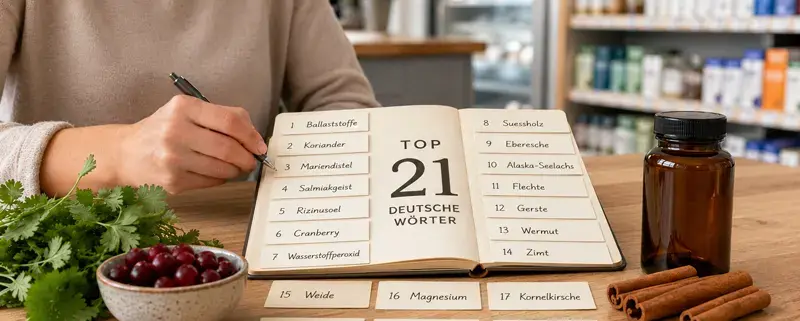 1 Ballaststoffe
2 Koriander
3 Mariendistel
4 Salmiakgeist
5 Rizinusoel
6 Cranberry
7 Wasserstoffperoxid
TOP
21
DEUTSCHE
WÖRTER
8 Suessholz
9 Eberesche
10 Alaska-Seelachs
11 Flechte
12 Gerste
13 Wermut
14 Zimt
15 Weide
16 Magnesium
17 Kornelkirsche